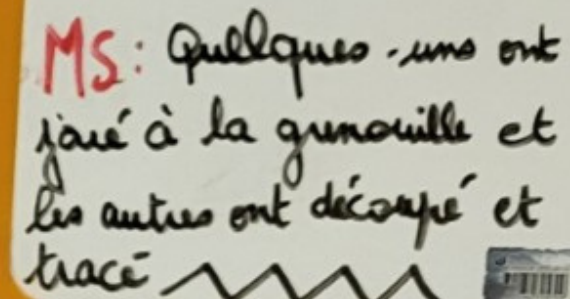 MS: Quelques-uns ont
joué à la grenouille et
les autres ont découpé et
tracé